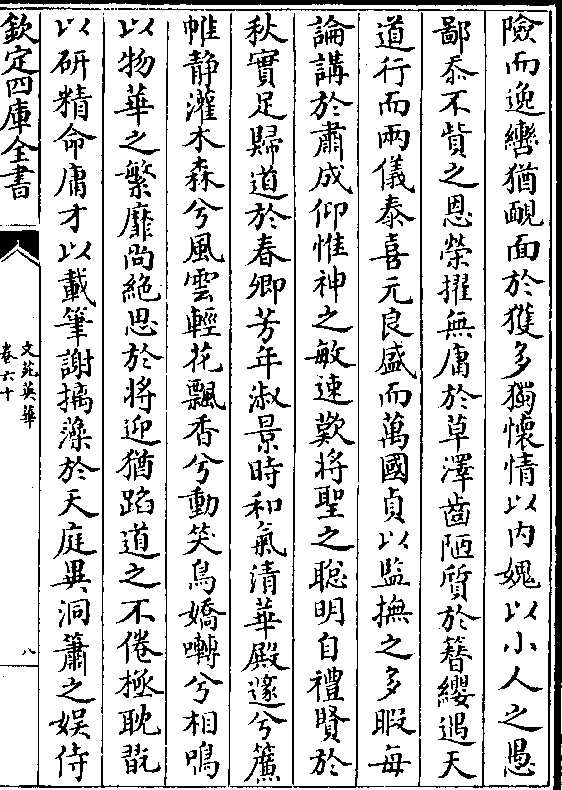 險而逸轡猶靦面於獲多獨懷情以內媿以小人之愚
鄙忝不貲之恩榮擢無庸於草澤齒陋質於簪纓遇天
道行而兩儀泰喜元良盛而萬國貞以監撫之多暇每
論講於肅成仰惟神之敏速歎將聖之聪明自禮賢於
秋實足歸道於春卿芳年淑景時和氣清華殿邃兮簾
帷静灌木森兮風雲輕花飄香兮動笑鳥嬌囀兮相鳴
以物華之繁靡尚絶思於將迎猶蹈道之不倦極耽翫
以研精命庸才以載筆謝摛藻於天庭異洞簫之娱侍
欽定四庫全書
文苑英華
卷六十
八